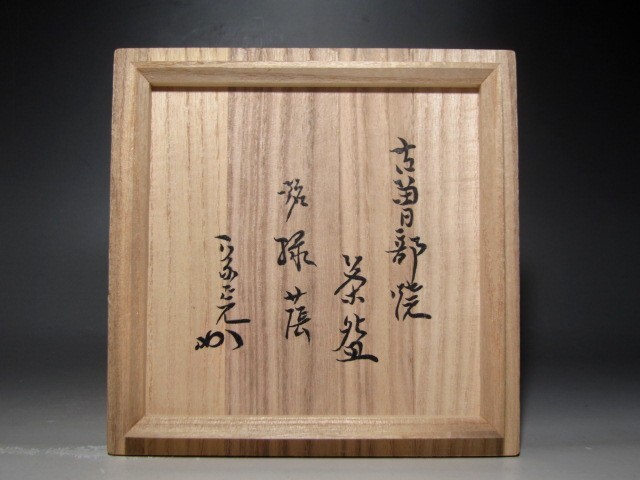 古曽部焼
茶盌
銘 緑蔭